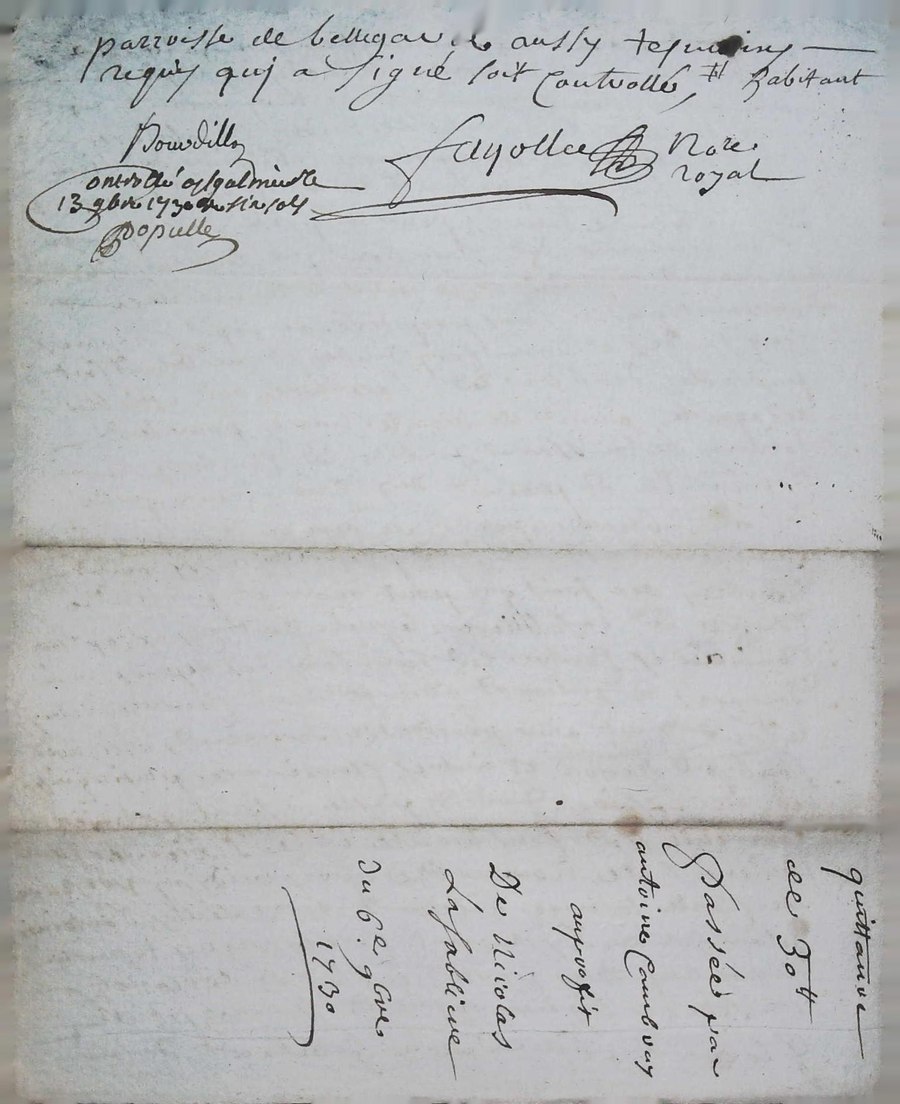 parroisse de bellegarde aussy tesmoins
requis qui a signé soit Controllé, # habitant
Bourdillon
fayolle Nore
royal
Controllé a St galmier le
13 9bre 1730 Rx six sols
Populle
quittance
de 30 ₶
Passée par
antoine
au profit
De Nicolas
Lasabliere
Du 6e 9bre
1730